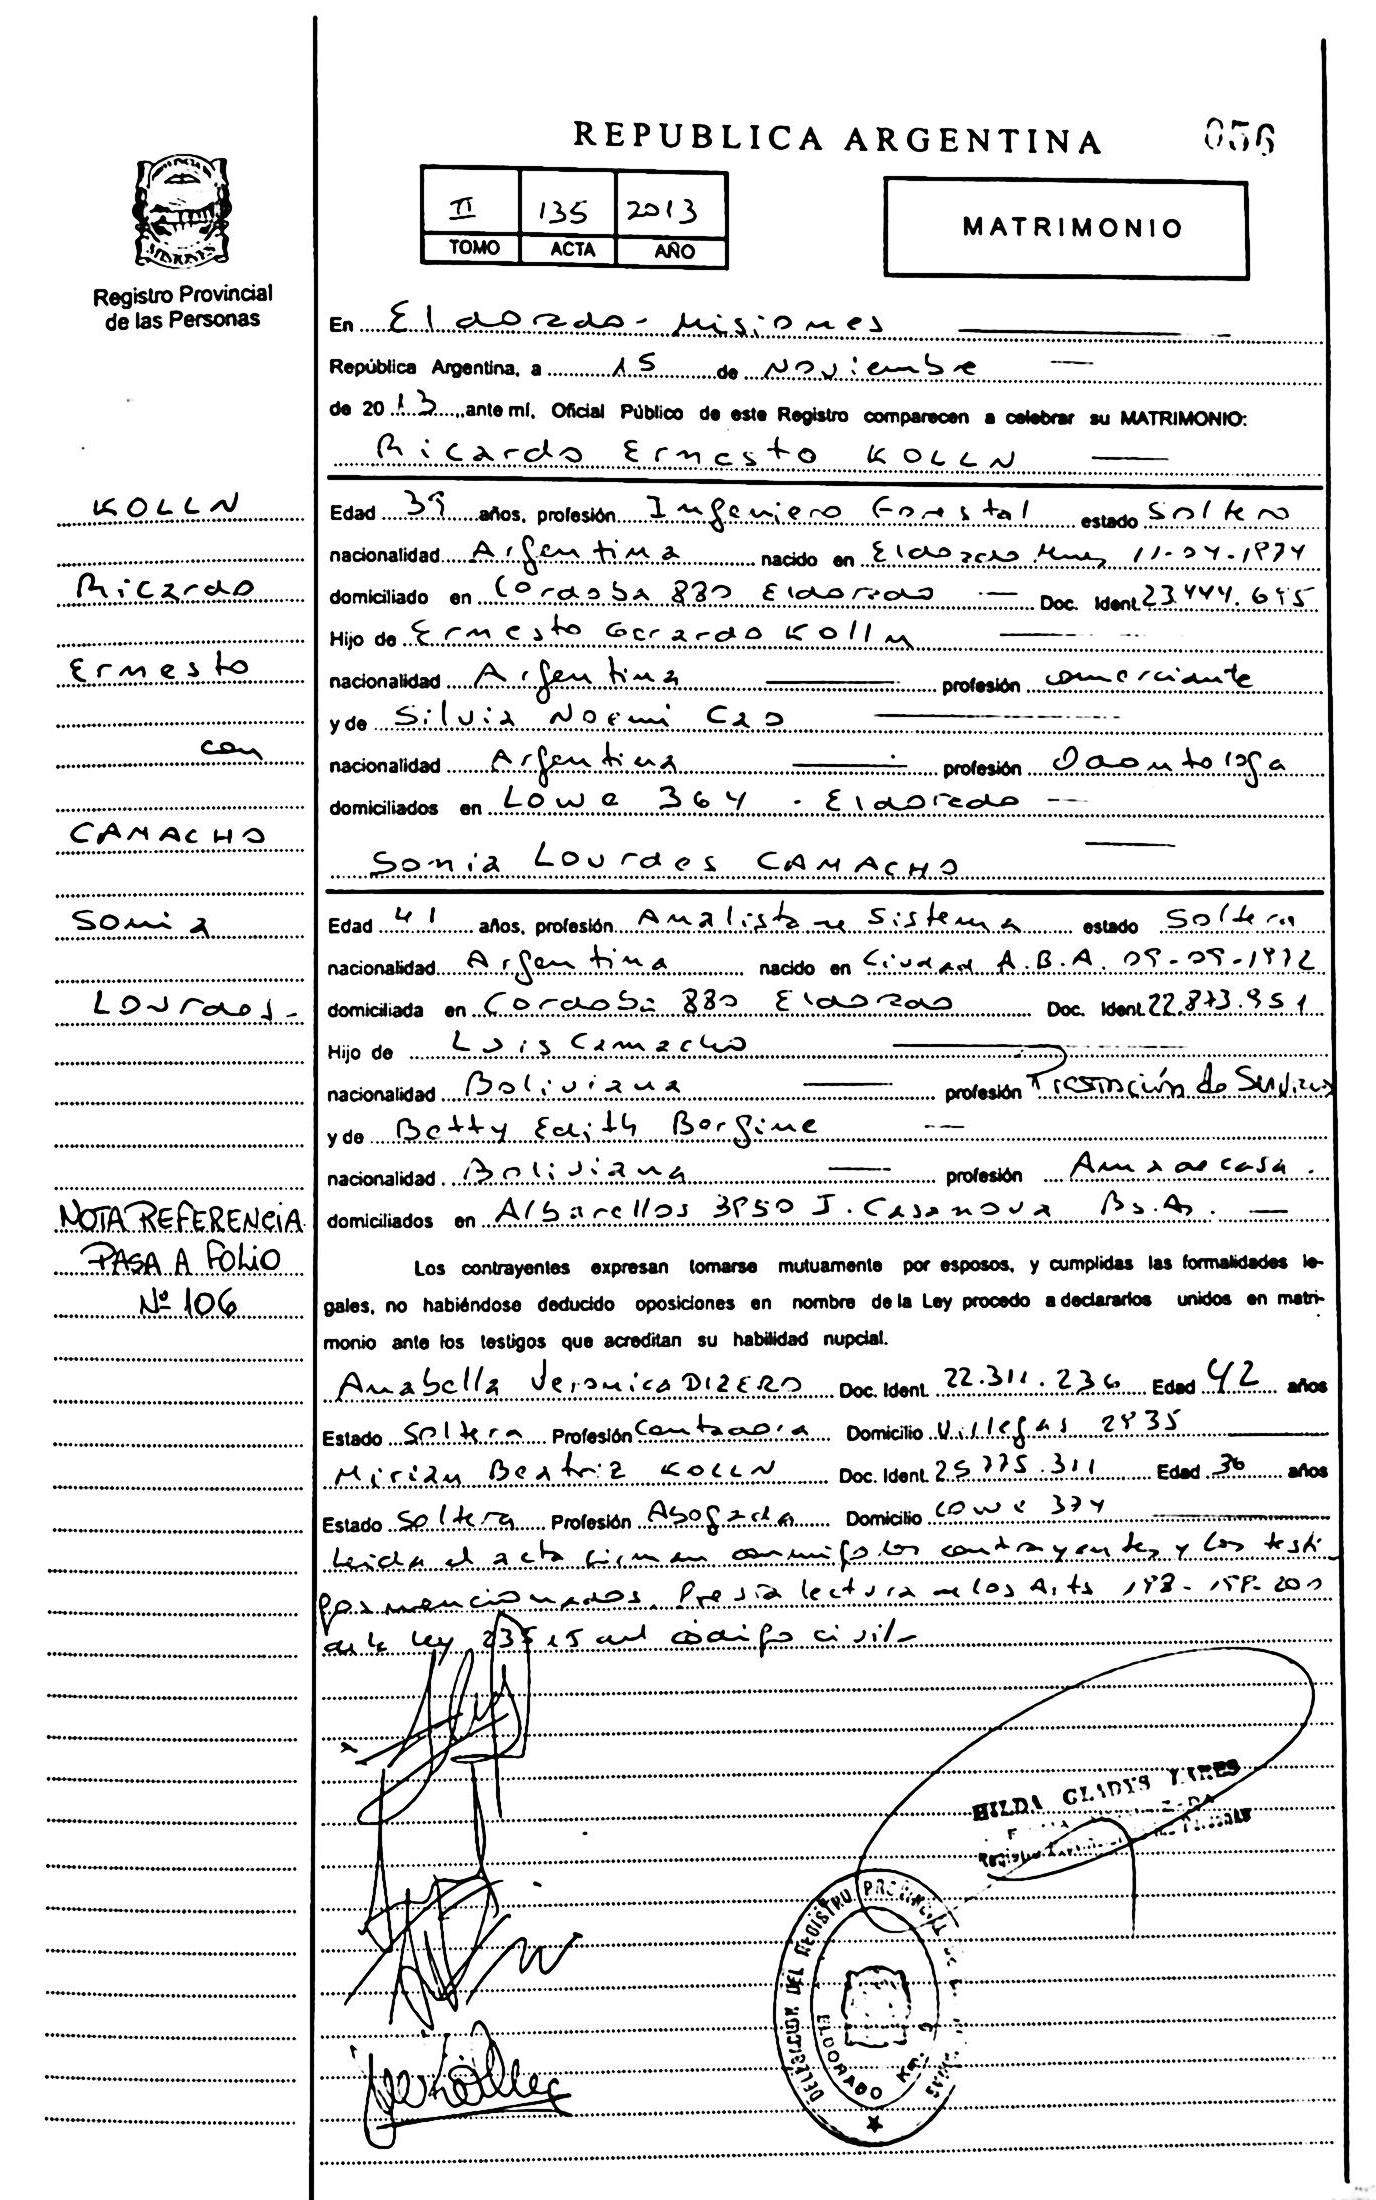 REPUBLICA ARGENTINA
056
MISIONES
Registro Provincial
de las Personas
II 135 2013
TOMO ACTA AÑO
MATRIMONIO
En Eldorado - Misiones
República Argentina, a 15 de Noviembre
de 2013 ante mí, Oficial Público de este Registro comparecen a celebrar su MATRIMONIO:
Ricardo Ernesto KOLLN
Edad 39 años, profesión Ingeniero Forestal estado Soltero
nacionalidad Argentina nacido en Eldorado Mnes 11-04-1974
domiciliado en Cordoba 880 Eldorado Doc. Ident. 23.444.695
Hijo de Ernesto Gerardo Kolln
nacionalidad Argentina profesión comerciante
y de Silvia Noemi Cao
nacionalidad Argentina profesión Odontologa
domiciliados en Lowe 364 - Eldorado
Sonia Lourdes CAMACHO
Edad 41 años, profesión Analista de Sistema estado Soltera
nacionalidad Argentina nacido en Ciudad A.B.A. 09-09-1972
domiciliada en Cordoba 880 Eldorado Doc. Ident. 22.873.951
Hijo de Luis Camacho
nacionalidad Boliviana profesión Prestación de Servicios
y de Betty Edith Borgine
nacionalidad Boliviana profesión Ama de casa.
domiciliados en Albarellos 3950 J. Casanova Bs.As.
Los contrayentes expresan tomarse mutuamente por esposos, y cumplidas las formalidades le-
gales, no habiéndose deducido oposiciones en nombre de la Ley procedo a declararlos unidos en matri-
monio ante los testigos que acreditan su habilidad nupcial.
Anabella Veronica DIZERO Doc. Ident. 22.311.236 Edad 42 años
Estado Soltera Profesión Contadora Domicilio Villegas 2935
Mirian Beatriz KOLLN Doc. Ident. 25.775.311 Edad 36 años
Estado Soltera Profesión Abogada Domicilio Lowe 374
Leida el acta firman conmigo los contrayentes y los testi
gos mencionados. Previa lectura de los Arts 198-199-200
de la ley 23515 del código civil-
KOLLN
Ricardo
Ernesto
con
CAMACHO
Sonia
Lourdes-
NOTA REFERENCIA
PASA A FOLIO
Nº 106
HILDA GLADYS YARES
DELEGACION DEL REGISTRO PROVINCIAL DE
ELDORADO KM. 9